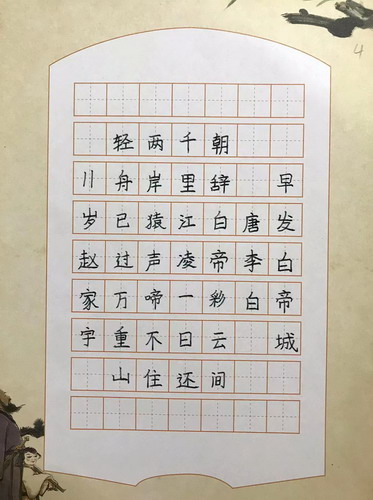 早发白帝城
唐李白
朝辞白帝彩云间
千里江凌一日还
两岸猿声啼不住
轻舟已过万重山
川岁赵家字
4